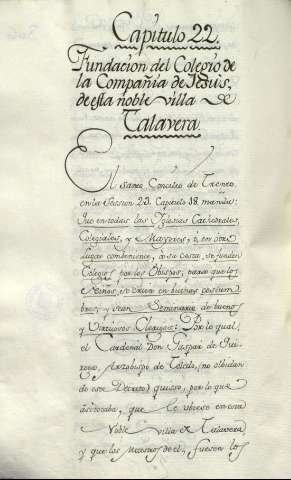 Capitulo 22.
Fundacion del Colegio de
la Compañia de Jesus,
de esta noble villa de
Talavera
El Santo Concilio de Trento
en la Session 23. Capitulo 18. manda:
Que en todas las Iglesias Cathedrales,
Colegiales, y Mayores, ô, en otro
lugar combeniente, a su costa, se funden
Colegios por los Obispos, para que los
Niños, se crien en buenas costum-
bres, y sean Seminario de buenos
y Virtuosos Clerigos: Por lo qual,
el Cardenal Don Gaspar de Qui-
roga, Arzobispo de Toledo, (no olvidan-
do este Decreto) quisso, por lo que
âsitocaba, que le ubiese en esta
Noble villa de Talavera
y que los Maestros de el, fuesen los